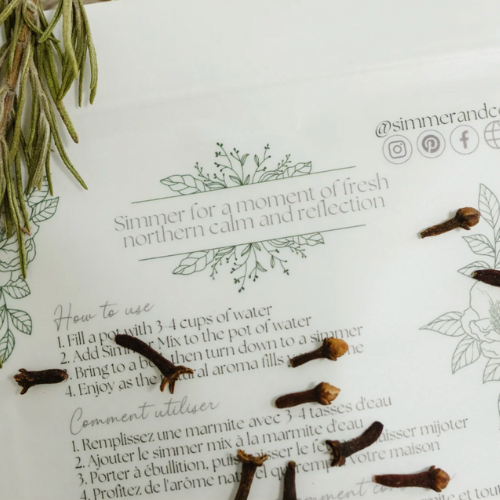 @simmerandc
Simmer for a moment of fresh
northern calm and reflection
How to use
1. Fill a pot with 3-4 cups of water
2. Add Simmer Mix to the pot of water
3. Bring to a then turn down to a simmer
4. Enjoy as the natural aroma fills
Comment utiliser
1. Remplissez une marmite avec 3-4 tasses d'eau
2. Ajouter le simmer mix à la marmite d'eau
3. Porter à ébullition, puis baisser le laisser mijoter
4. Profitez de l'arôme naturel votre maison